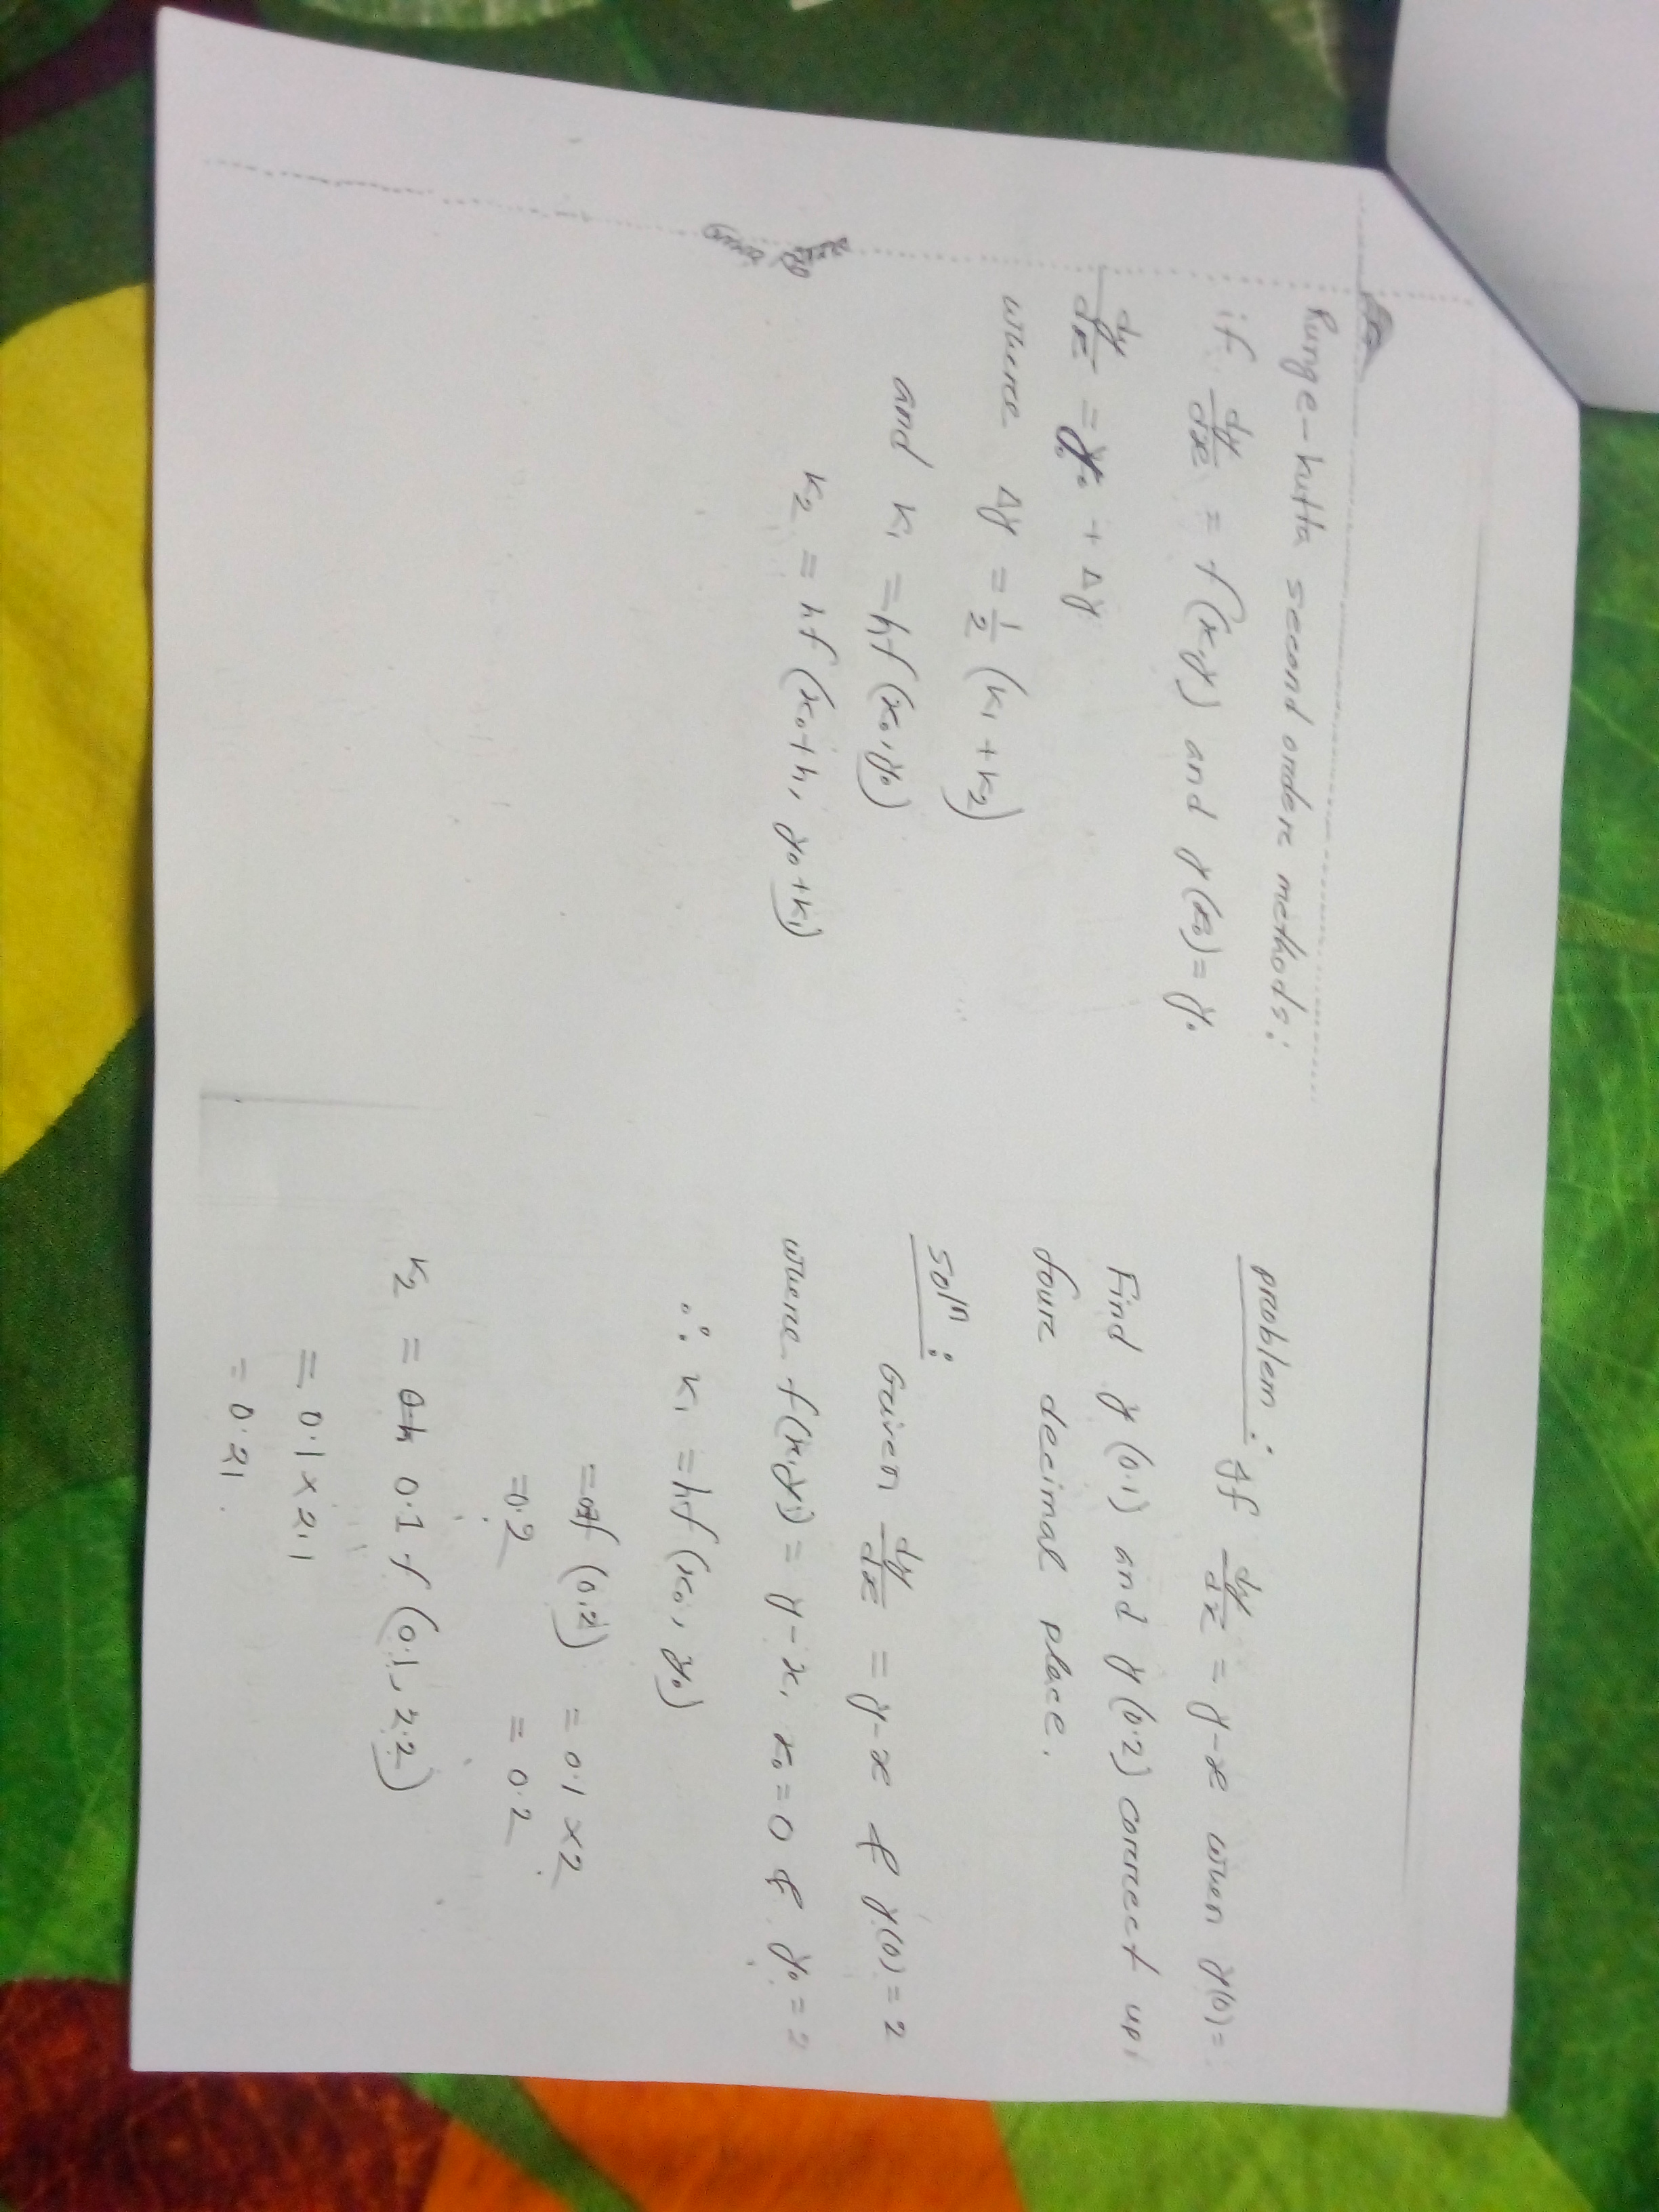 Runge-Kutta second ordere methods:
if dy/dx = f(x,y) and y(x₀) = y₀
dy/dx = y₀ + Δy
where Δy = 1/2 (K₁ + K₂)
and K₁ = hf(x₀, y₀)
K₂ = hf(x₀+h, y₀+K₁)
problem: If dy/dx = y-x when y(0)=
Find y(0.1) and y(0.2) correct up
four decimal place.
Solⁿ:
Given dy/dx = y-x & y(0) = 2
where f(x,y) = y-x, x₀ = 0 & y₀ = 2
∴ K₁ = hf(x₀, y₀)
= f(0,2) = 0.1 × 2
= 0.2 = 0.2
K₂ = 0.1 f(0.1, 2.2)
= 0.1 × 2.1
= 0.21